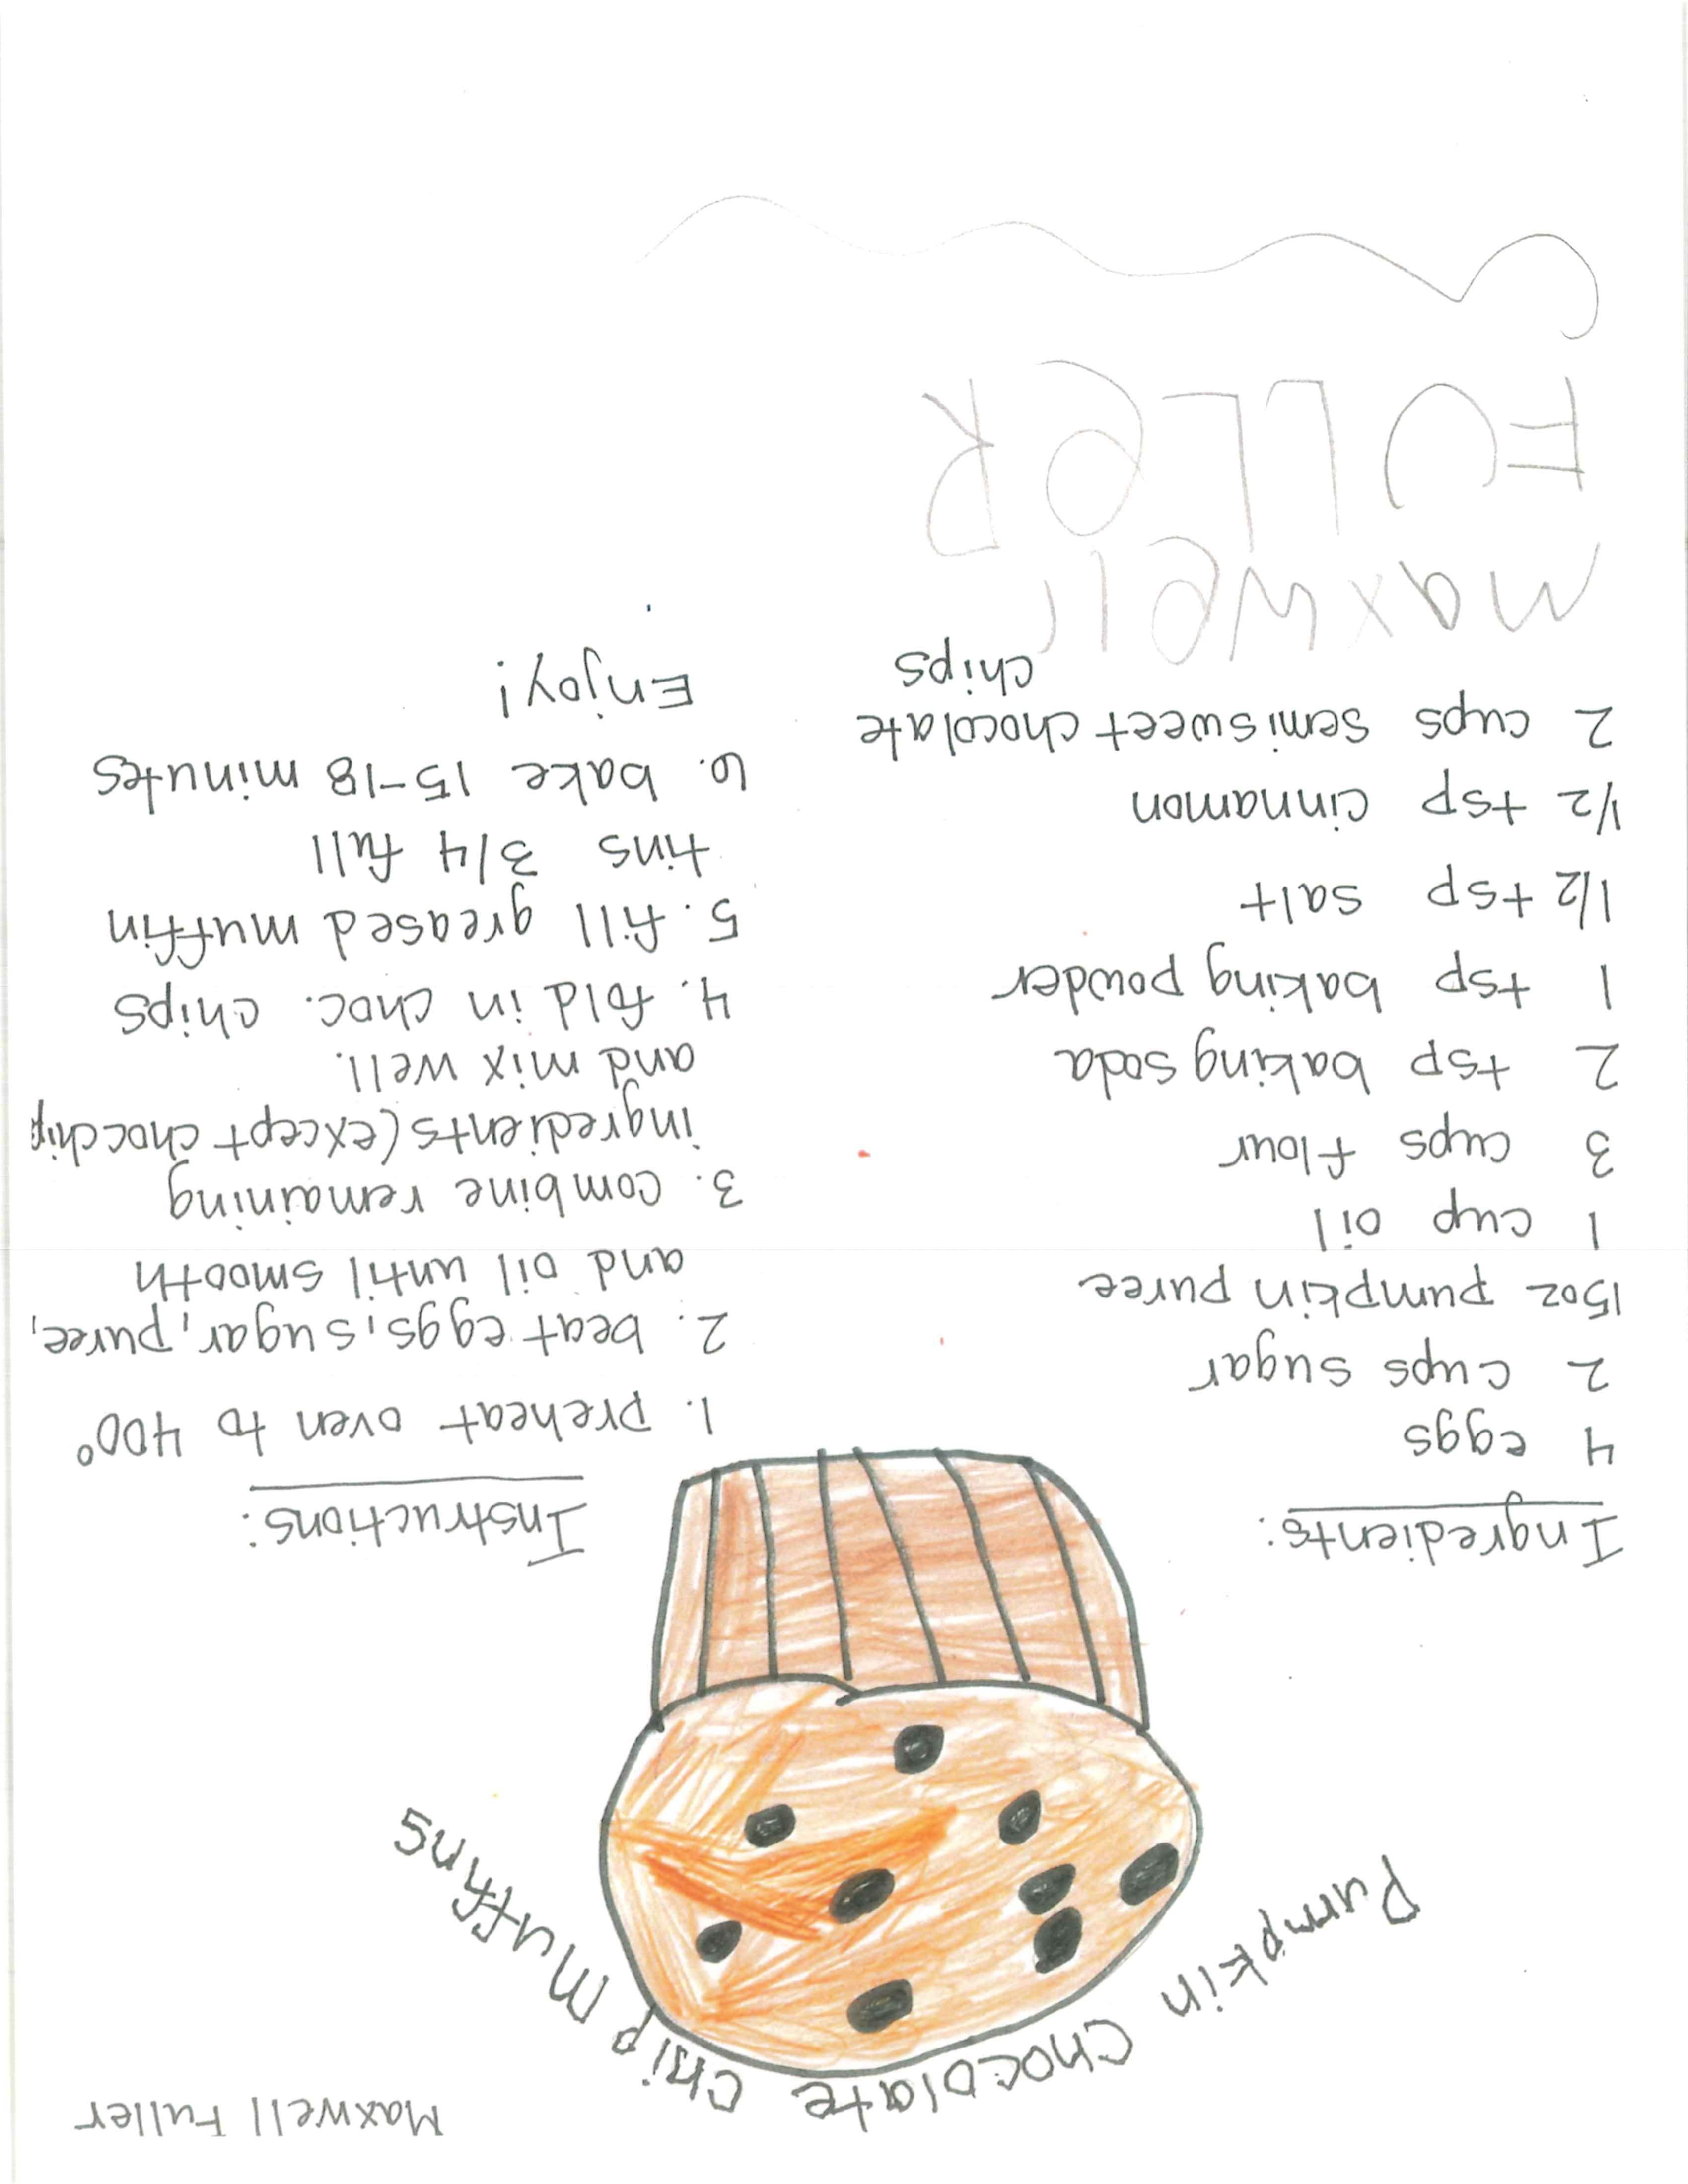 Maxwell Fuller
Pumpkin Chocolate Chip Muffins
Ingredients:
4 eggs
2 cups sugar
15oz pumpkin puree
1 cup oil
3 cups flour
2 tsp baking soda
1 tsp baking powder
1/2 tsp salt
1/2 tsp cinnamon
2 cups semisweet chocolate
chips
Instructions:
1. preheat oven to 400°
2. beat eggs, sugar, puree,
and oil until smooth
3. combine remaining
ingredients (except choc chip
and mix well.
4. fold in choc. chips
5. fill greased muffin
tins 3/4 full
6. bake 15-18 minutes
Enjoy!
maxwell
FULLeR